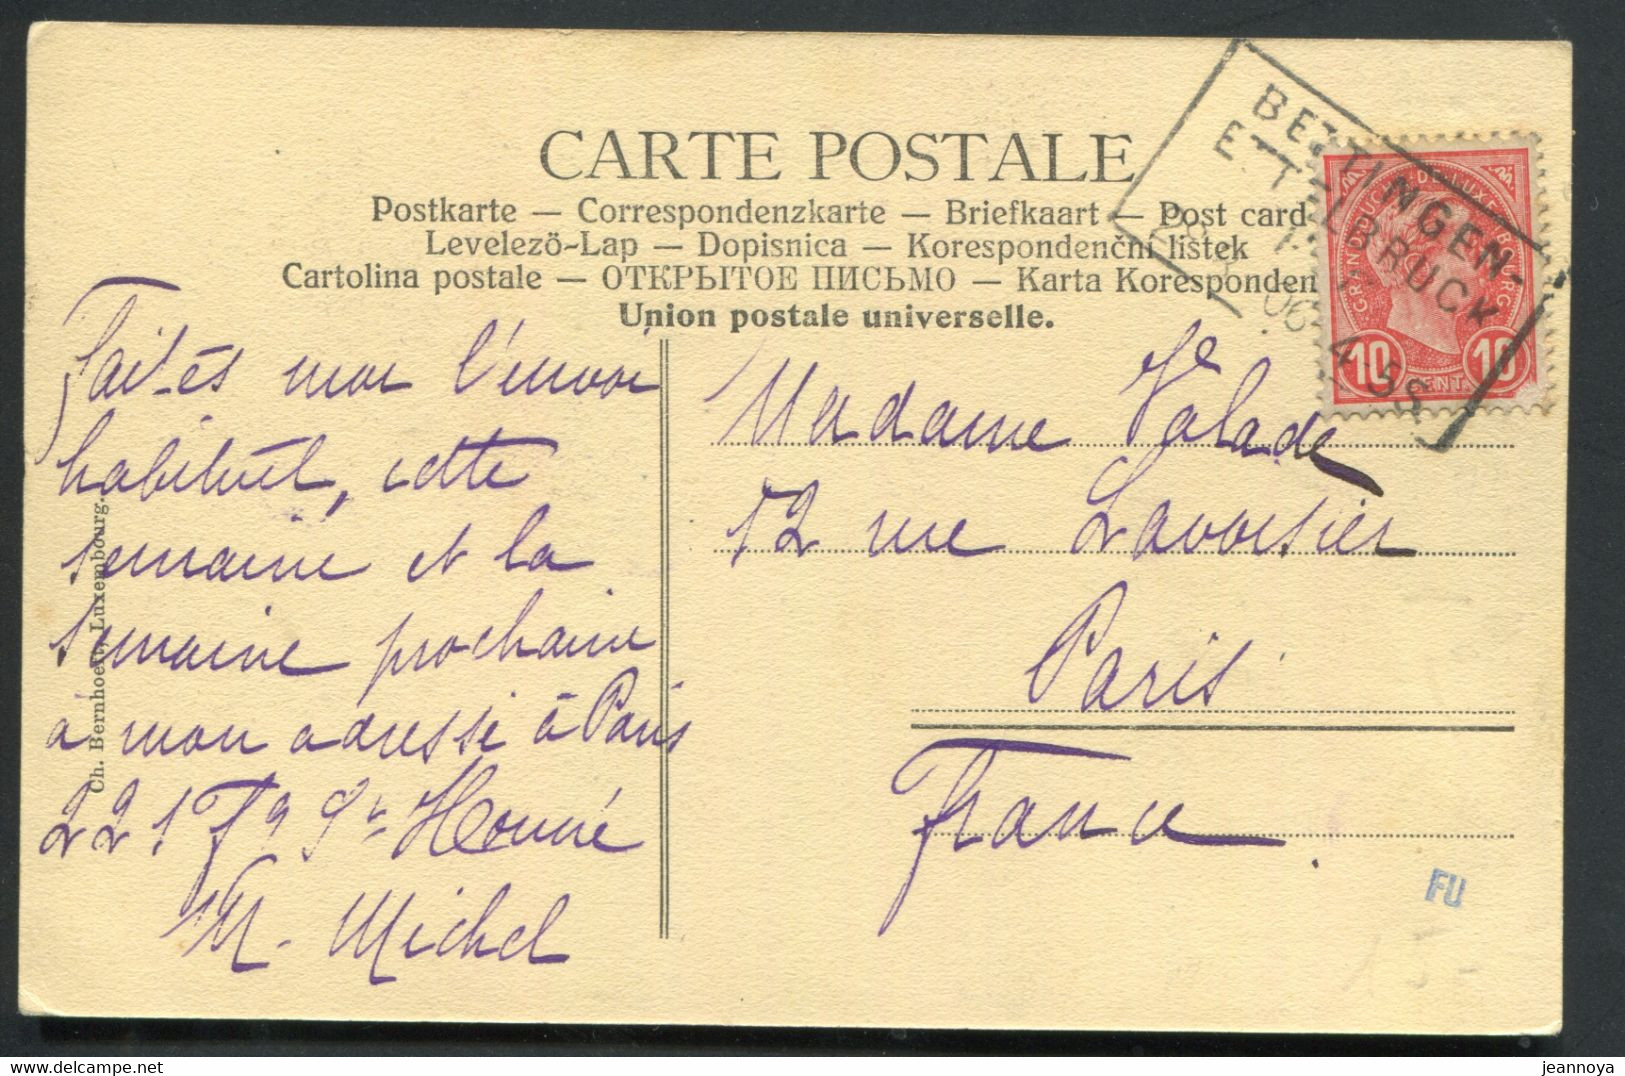 CARTE POSTALE
Postkarte — Correspondenzkarte — Briefkaart — Post card
Levelezö-Lap — Dopisnica — Korespondenční lístek
Cartolina postale — ОТКРЫТОЕ ПИСЬМО — Karta Koresponden
Union postale universelle.
BETTINGEN-
ETTELBRUCK
06
4 55
GRAND DUCHÉ DE LUXEMBOURG
10 CENT. 10
Faites moi l'envoi
habituel, cette
semaine et la
semaine prochaine
a mon adresse à Paris
221 Fg St Honoré
M. Michel
Madame Ve Valade
12 rue Lavoisier
Paris
France
Ch. Bernhoeft, Luxembourg.
FU
delcampe.net
jeannoya